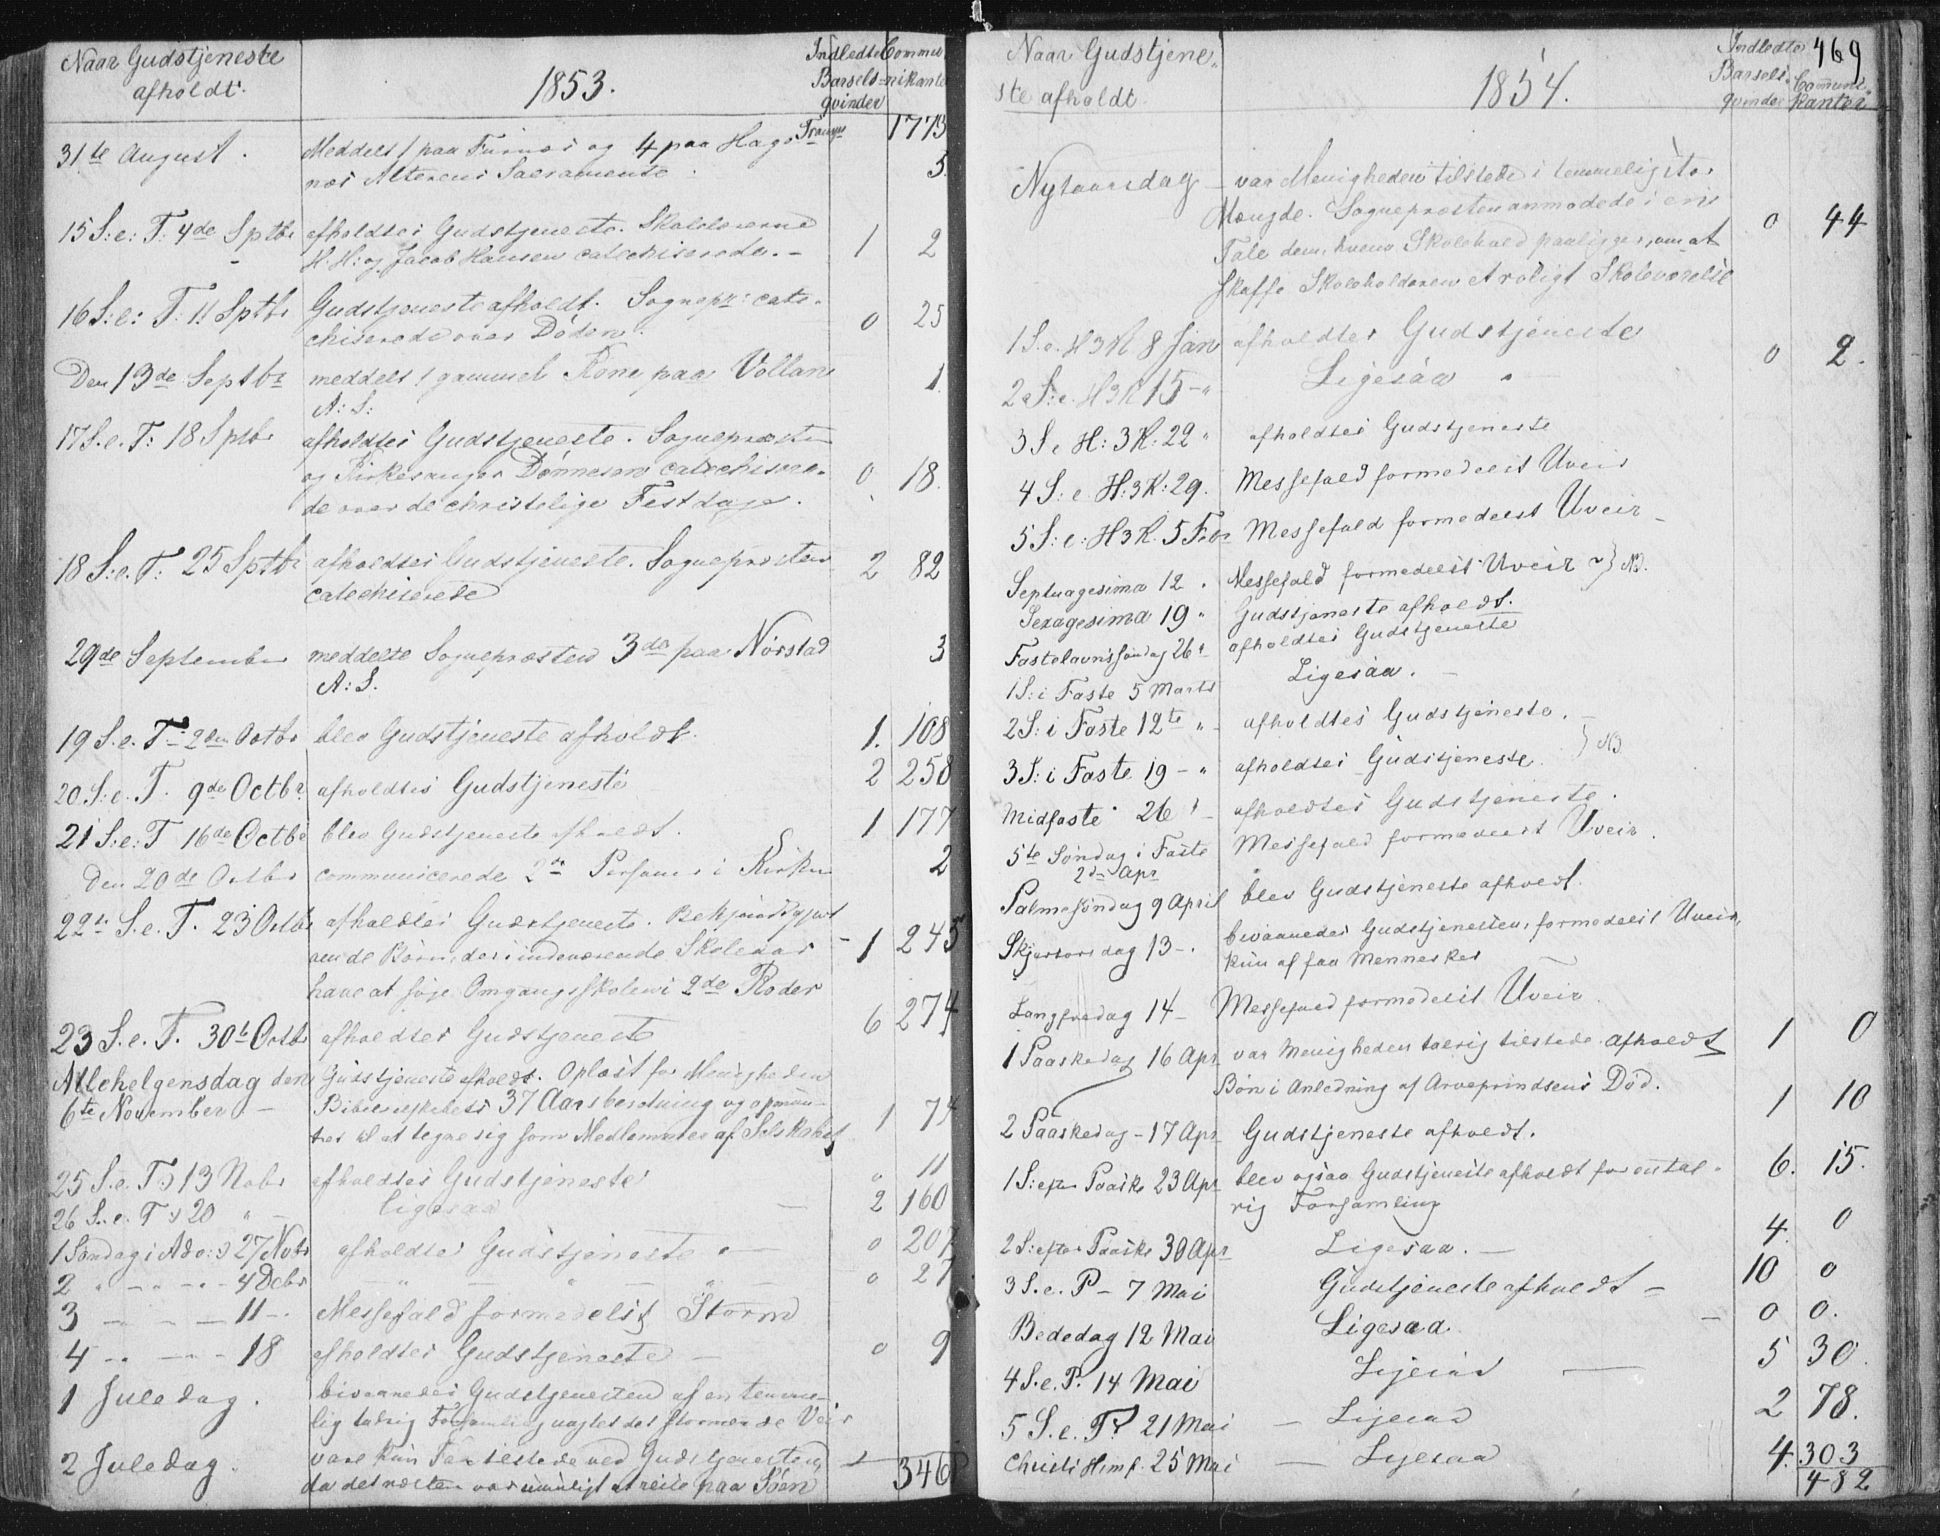 Naar Gudstjeneste
afholdt.
1853.
Indledte
Barsels-
qvinder
Commu-
nikanter
Transp. 1773
31te August. Meddelt 1 paa Furnæs og 4 paa Hagenæs
Alterens Sacramente. 5.
15 S: e: T: 4de Sptbr afholdtes Gudstjeneste. Skolelærerne 1 2
H. H: og Jacob Hansen catechiserede. -
16 S: e: T: 11 Sptbr Gudstjeneste afholdt. Sognepr: cate- 0 25
chiserede over Døden.
Den 13de Septbr meddelt 1 gammel Kone paa Vollan 1.
A: S:
17 S. e. T: 18 Sptbr afholdtes Gudstjeneste. Sognepræsten
og Kirkesanger Dønnesen catechisere- 0 18.
de over de christelige Festdage.
18 S: e. T: 25 Sptbr afholdtes Gudstjeneste. Sognepræsten 2 82
catechiserede
29de September meddelte Sognepræsten 3de paa Nørstad 3
A: S.
19 S. e. T. 2den Octbr blev Gudstjeneste afholdt. 1. 108
20. S: e. T. 9de Octbr. afholdtes Gudstjeneste 2 258
21 S: e: T 16de Octbr blev Gudstjeneste afholdt. 1 177
Den 20de Octbr communicerede 2de Personer i Kirken 2
22de S. e. T. 23 Octbr afholdtes Gudstjeneste. Bekjendtgjort
de Børn, der i indeværende Skoleaar - 1 245
have at søge Omgangsskolen i 2de Roder
23 S. e. T. 30te Octbr afholdtes Gudstjeneste 6 274
Allehelgensdag den Gudstjeneste afholdt. Oplæst for Menigheden
6te November - Bibelselskabets 37 Aarsberetning og opmun- 1 74
tret til at tegne sig som Medlemmer af Selskabet
25 S. e. T. 13 Nobr afholdtes Gudstjeneste 0 11
26 S. e. T. 20 " - ligesaa - 2 160
1 Søndag i Adv: 27 Nobr afholdtes Gudstjeneste - 0 207
2 " - - - 4 Debr - " - " - 0 27
3 - - - 11 - Messefald formedelst Storm
4 - - - 18 afholdtes Gudstjeneste - 0 9
1 Juledag. bivaanedes Gudstjenesten af en temme-
lig talrig Forsamling uagtet det stormende Veir
2 Juledag. vare kun Faa tilstede ved Gudstjenesten
da det næsten var umuligt at reise paa Søen 346
Naar Gudstjene-
ste afholdt.
1854.
Indledte
Barsels-
qvinder
469
Communi-
kanter
Nytaarsdag - var Menigheden tilstede i temmelig stor
Mængde. Sognepræsten anmodede i en 0 44
Tale dem, hvem Skolehold paaligger, om at
skaffe Skoleholderen et roligt Skoleværelse
1 S. e. H 3 K 8 Jan afholdtes Gudstjeneste 0 2.
2 S: e. H 3 K 15 - " Ligesaa -
3 S. e H: 3 K: 22 " afholdtes Gudstjeneste
4 S: e. H: 3 K: 29. Messefald formedelst Uveir
5 S: e: H 3 K. 5 Febr Messefald formedelst Uveir -
Septuagesima 12 " Messefald formedelst Uveir } NB.
Sexagesima 19 " Gudstjeneste afholdt.
Fastelavnssøndag 26 " afholdtes Gudstjeneste
1 S: i Faste 5 Marts Ligesaa. -
2 S: i Faste 12te " - afholdtes Gudstjeneste. -
3 S: i Faste 19 - " afholdtes Gudstjeneste. } NB
Midfaste 26 " - afholdtes Gudstjeneste.
5te Søndag i Faste Messefald formedelst Uveir.
2den Apr
Palmesøndag 9 April blev Gudstjeneste afholdt.
Skjærtorsdag 13 - . bivaanedes Gudstjenesten, formedelst Uveir,
kun af faa Mennesker
Langfredag 14 - Messefald formedelst Uveir.
1 Paaskedag 16 Apr. var Menigheden talrig tilstede. Afholdt 1 0
Bøn i Anledning af Arveprindsens Død.
2 Paaskedag - 17 Apr Gudstjeneste afholdt. 1 10
1 S: efter Paaske 23 Apr blev ogsaa Gudstjeneste afholdt for en tal- 6. 15.
rig Forsamling
2 S: efter Paaske 30 Apr Ligesaa. - 4. 0
3 S. e. P - 7 Mai Gudstjeneste afholdt - 10 0
Bededag 12 Mai Ligesaa - 0 0.
4 S. e. P. 14 Mai Ligesaa - 5 30.
5 S. e. P 21 Mai - Ligesaa 2 78.
Christi Himf. 25 Mai - Ligesaa 4. 303
482